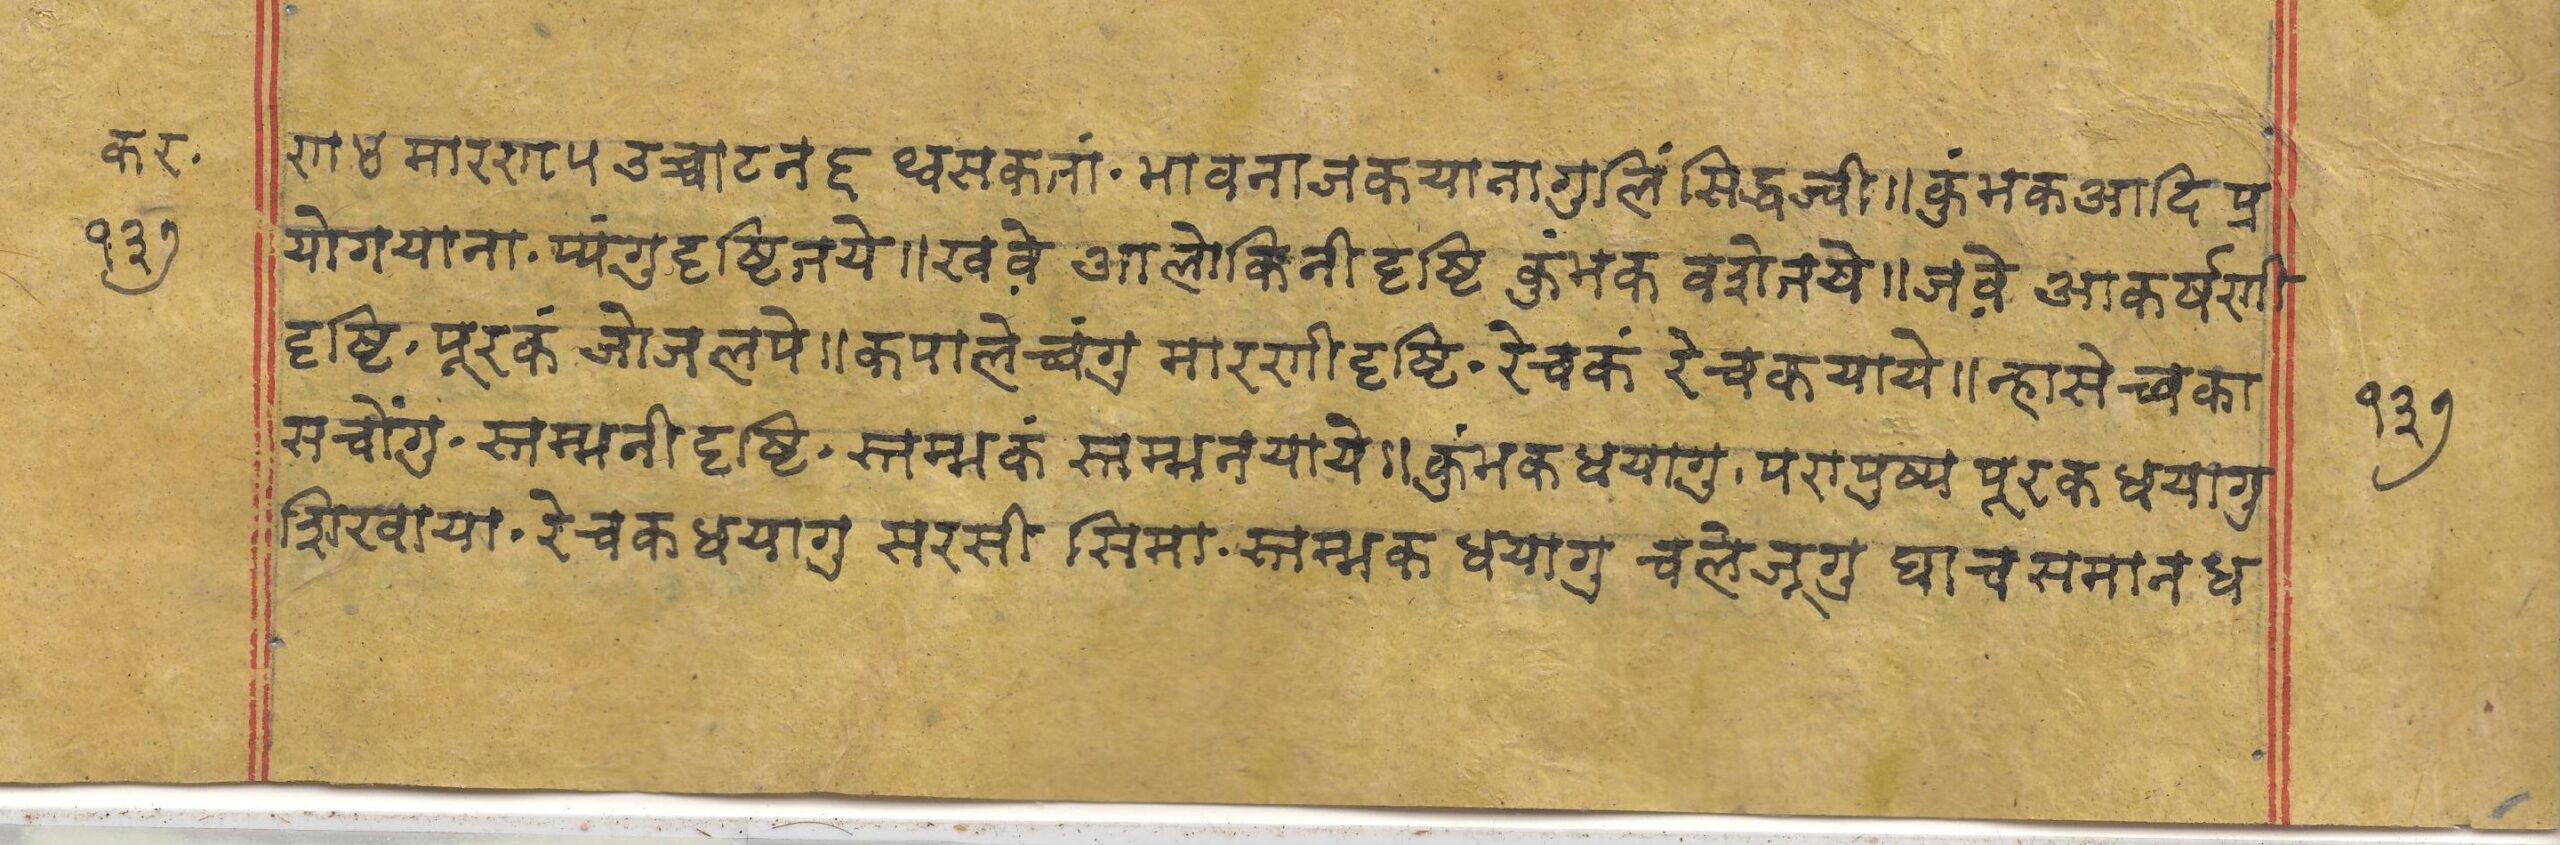 कर.
१३७
णा ४ मारण ५ उच्चाटन ६ थ्वसकतां. भावनाजकयानागुलिं सिद्धज्वी॥ कुंभक आदि प्र
योगयाना. प्यंगु दृष्टि तये॥ खवे आलोकिनी दृष्टि कुंभक वशेतये॥ जवे आकर्षणी
दृष्टि. पूरकं ओजलपे॥ कपालेच्वंगु मारणी दृष्टि. रेचकं रेचकयाये॥ न्हासेच्वका
सचोंगु. स्तम्भनी दृष्टि. स्तम्भकं स्तम्भनयाये॥ कुंभक धयागु. परापुष्प पूरक धयागु
शिखाया. रेचक धयागु सरसी सिमा. स्तम्भक धयागु चलेजूगु घाच समान ध
१३७